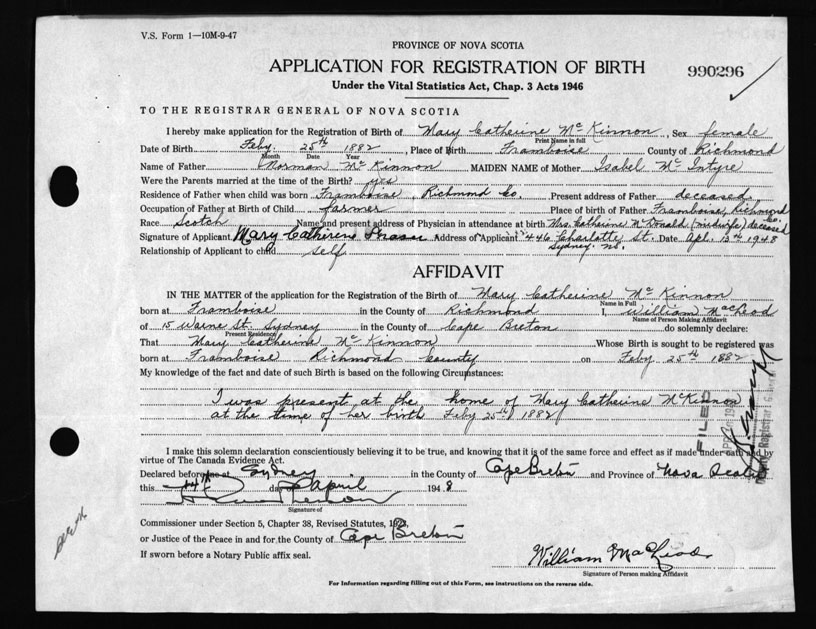 V.S. Form 1—10M-9-47
PROVINCE OF NOVA SCOTIA
APPLICATION FOR REGISTRATION OF BIRTH
990296
Under the Vital Statistics Act, Chap. 3 Acts 1946
TO THE REGISTRAR GENERAL OF NOVA SCOTIA
I hereby make application for the Registration of Birth of Mary Catherine McKinnon, Sex female
Print Name in full
Date of Birth Feby. 25th 1882, Place of Birth Framboise County of Richmond
Month Date Year
Name of Father Norman McKinnon MAIDEN NAME of Mother Isabel McIntyre
Were the Parents married at the time of the Birth? yes
Residence of Father when child was born Framboise, Richmond Co. Present address of Father deceased
Occupation of Father at Birth of Child farmer Place of birth of Father Framboise, Richmond Co.
Race Scotch Name and present address of Physician in attendance at birth Mrs. Catherine McDonald (midwife) deceased
Signature of Applicant Mary Catherene Fraser Address of Applicant 446 Charlotte St. Sydney. Date Apl. 13th 1948
Relationship of Applicant to child self
AFFIDAVIT
IN THE MATTER of the application for the Registration of the Birth of Mary Catherine McKinnon
Name in Full
born at Framboise in the County of Richmond I, William MacLeod
Name of Person Making Affidavit
of 15 Warne St. Sydney in the County of Cape Breton do solemnly declare:
Present Residence
That Mary Catherine McKinnon Whose Birth is sought to be registered was
born at Framboise Richmond County on Feby 25th 1882
My knowledge of the fact and date of such Birth is based on the following Circumstances:
I was present at the home of Mary Catherine McKinnon
at the time of her birth Feby 25th 1882
FILED
I make this solemn declaration conscientiously believing it to be true, and knowing that it is of the same force and effect as if made under oath and by
virtue of The Canada Evidence Act.
Declared before me at Sydney in the County of Cape Breton and Province of Nova Scotia
this 14th day of April 1948
Signature of
Commissioner under Section 5, Chapter 38, Revised Statutes, 1923,
or Justice of the Peace in and for the County of Cape Breton
If sworn before a Notary Public affix seal.
William MacLeod
Signature of Person making Affidavit
For Information regarding filling out of this Form, see instructions on the reverse side.